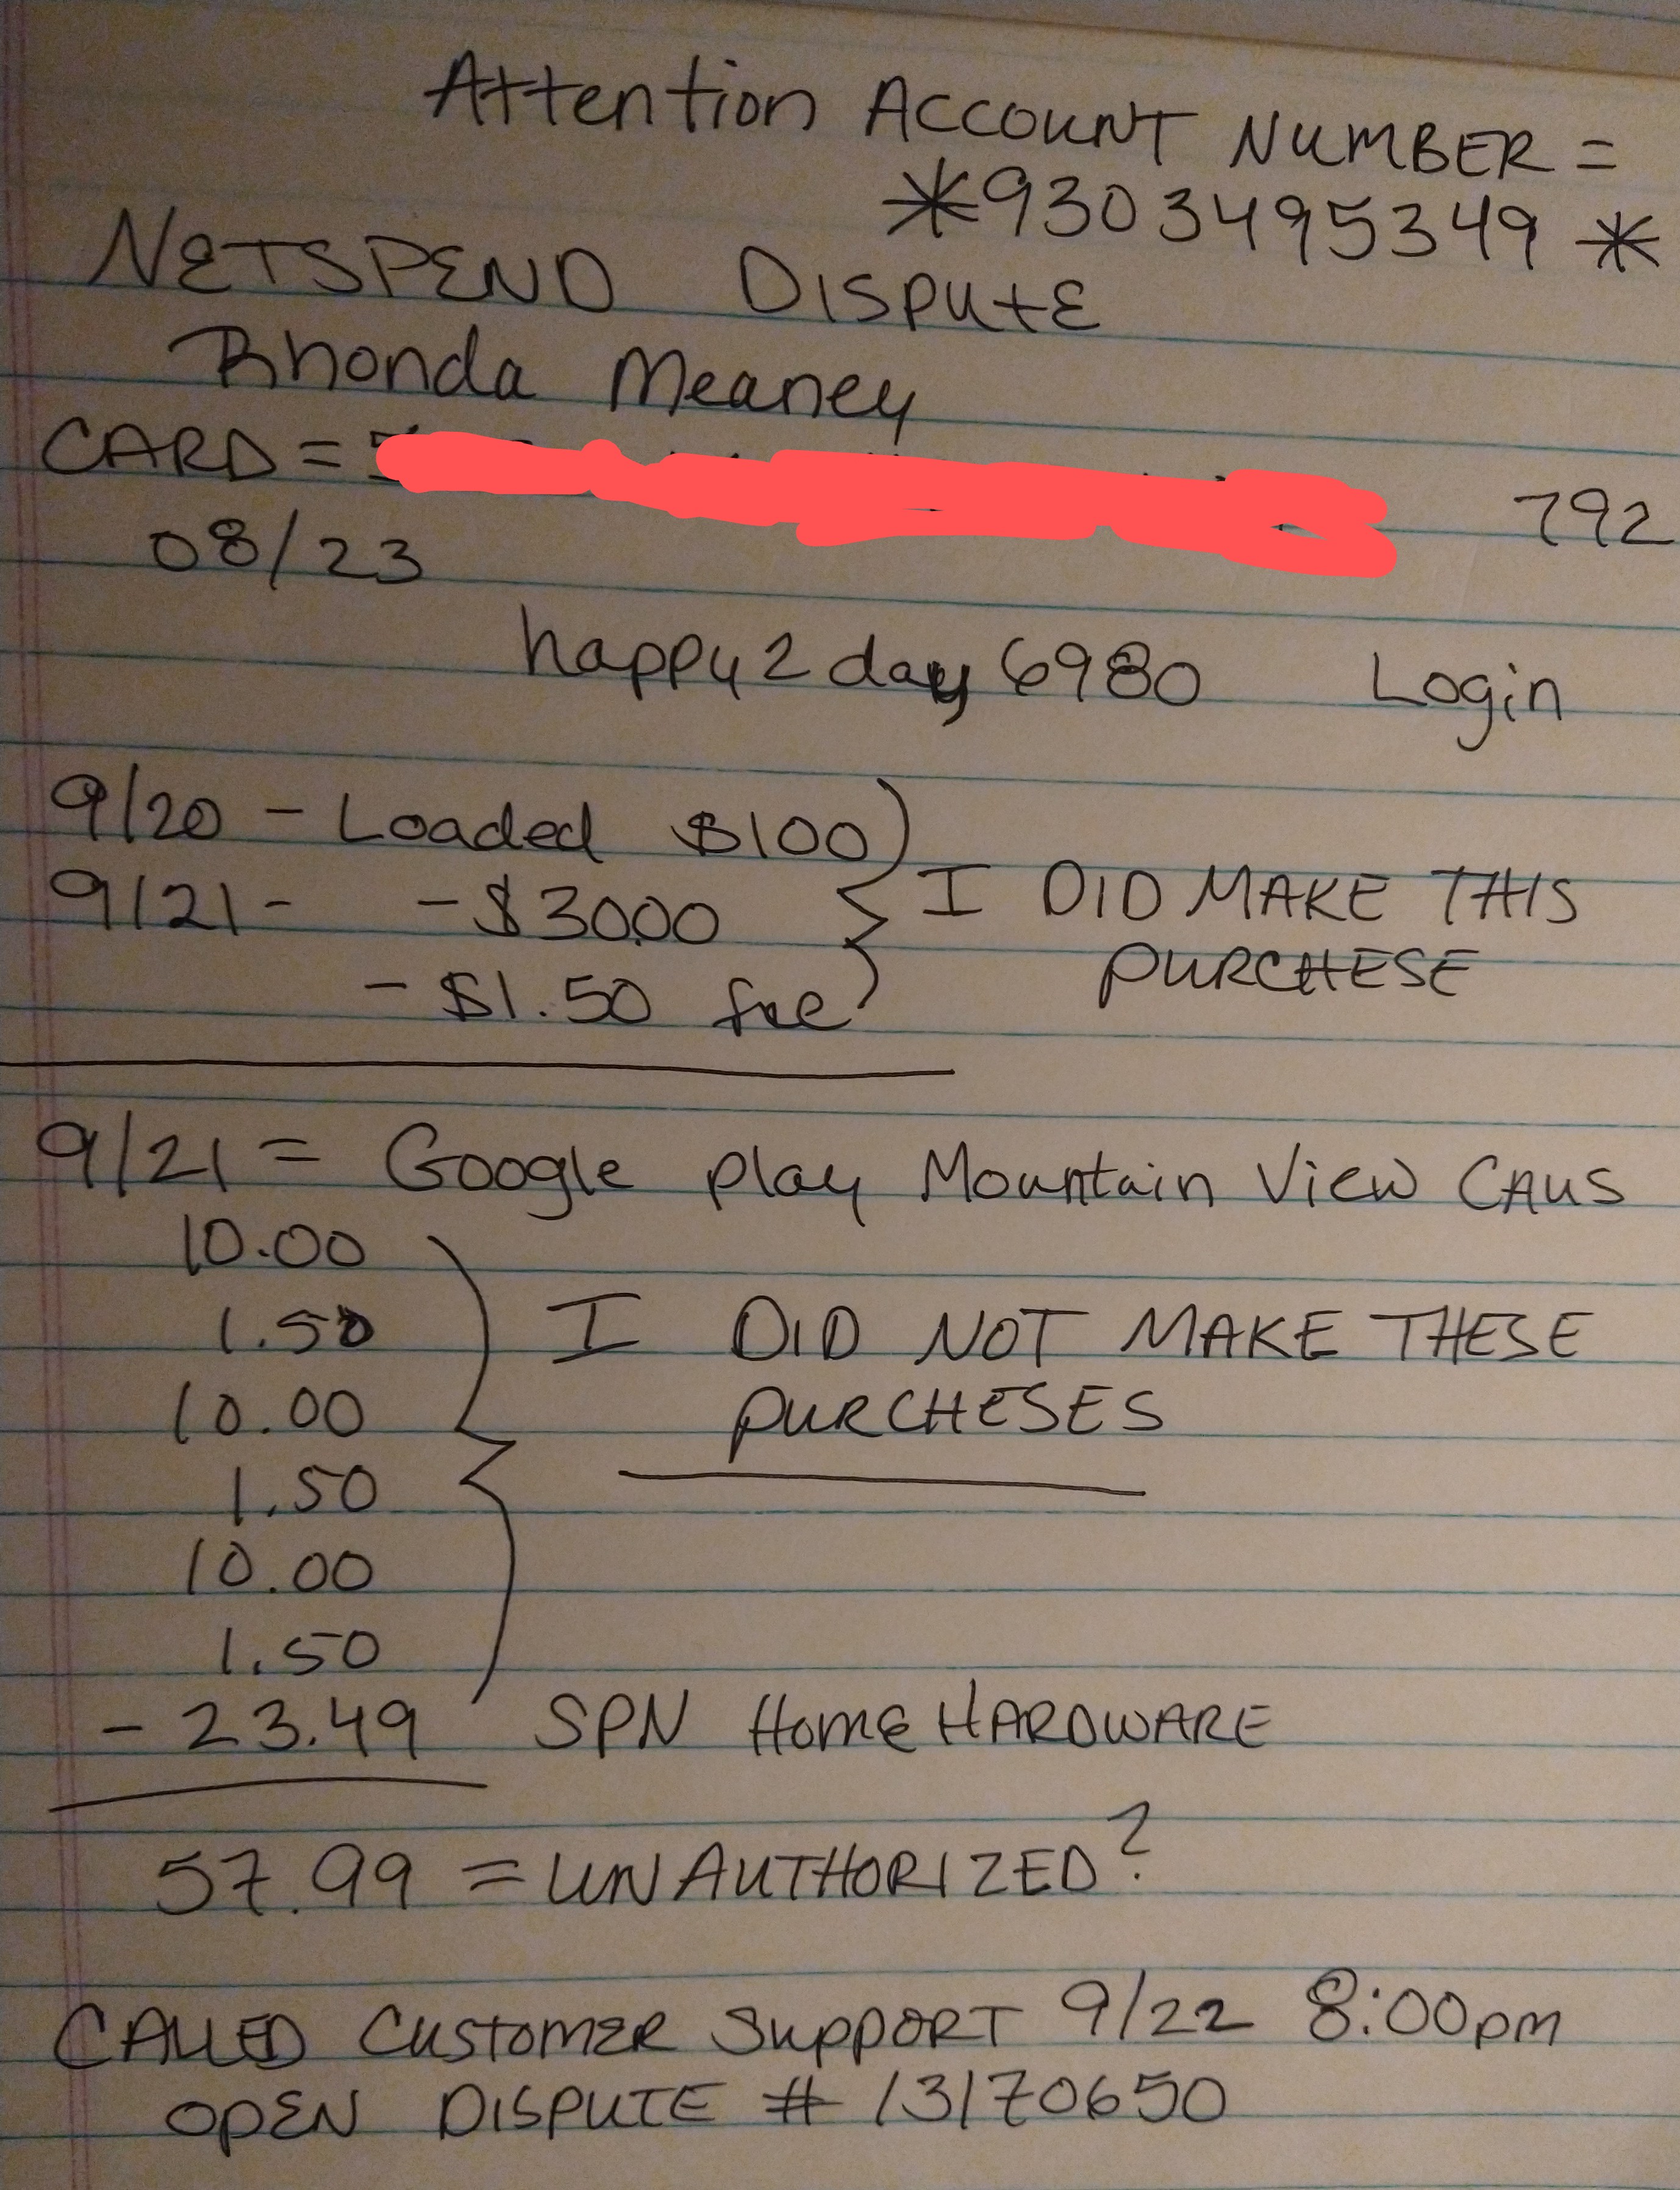 Attention Account Number =
*9303495349*
NETSPEND Dispute
Rhonda Meaney
CARD = 792
08/23
happy2day6980 Login
9/20 - Loaded $100
9/21 - -$30.00 I DID MAKE THIS
-$1.50 fee PURCHESE
9/21 = Google play Mountain View CAUS
10.00
1.50 I DID NOT MAKE THESE
10.00 PURCHESES
1.50
10.00
1.50
- 23.49 SPN Home HARDWARE
57.99 = UNAUTHORIZED?
CALLED Customer Support 9/22 8:00pm
OPEN DISPUTE # 13170650